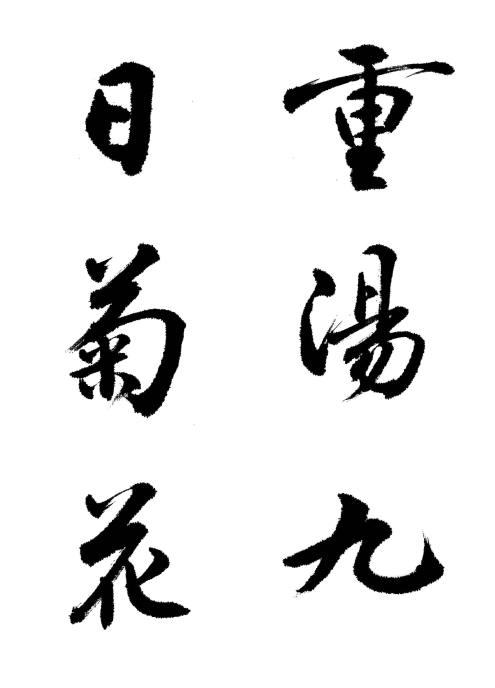 重湯九
日菊花